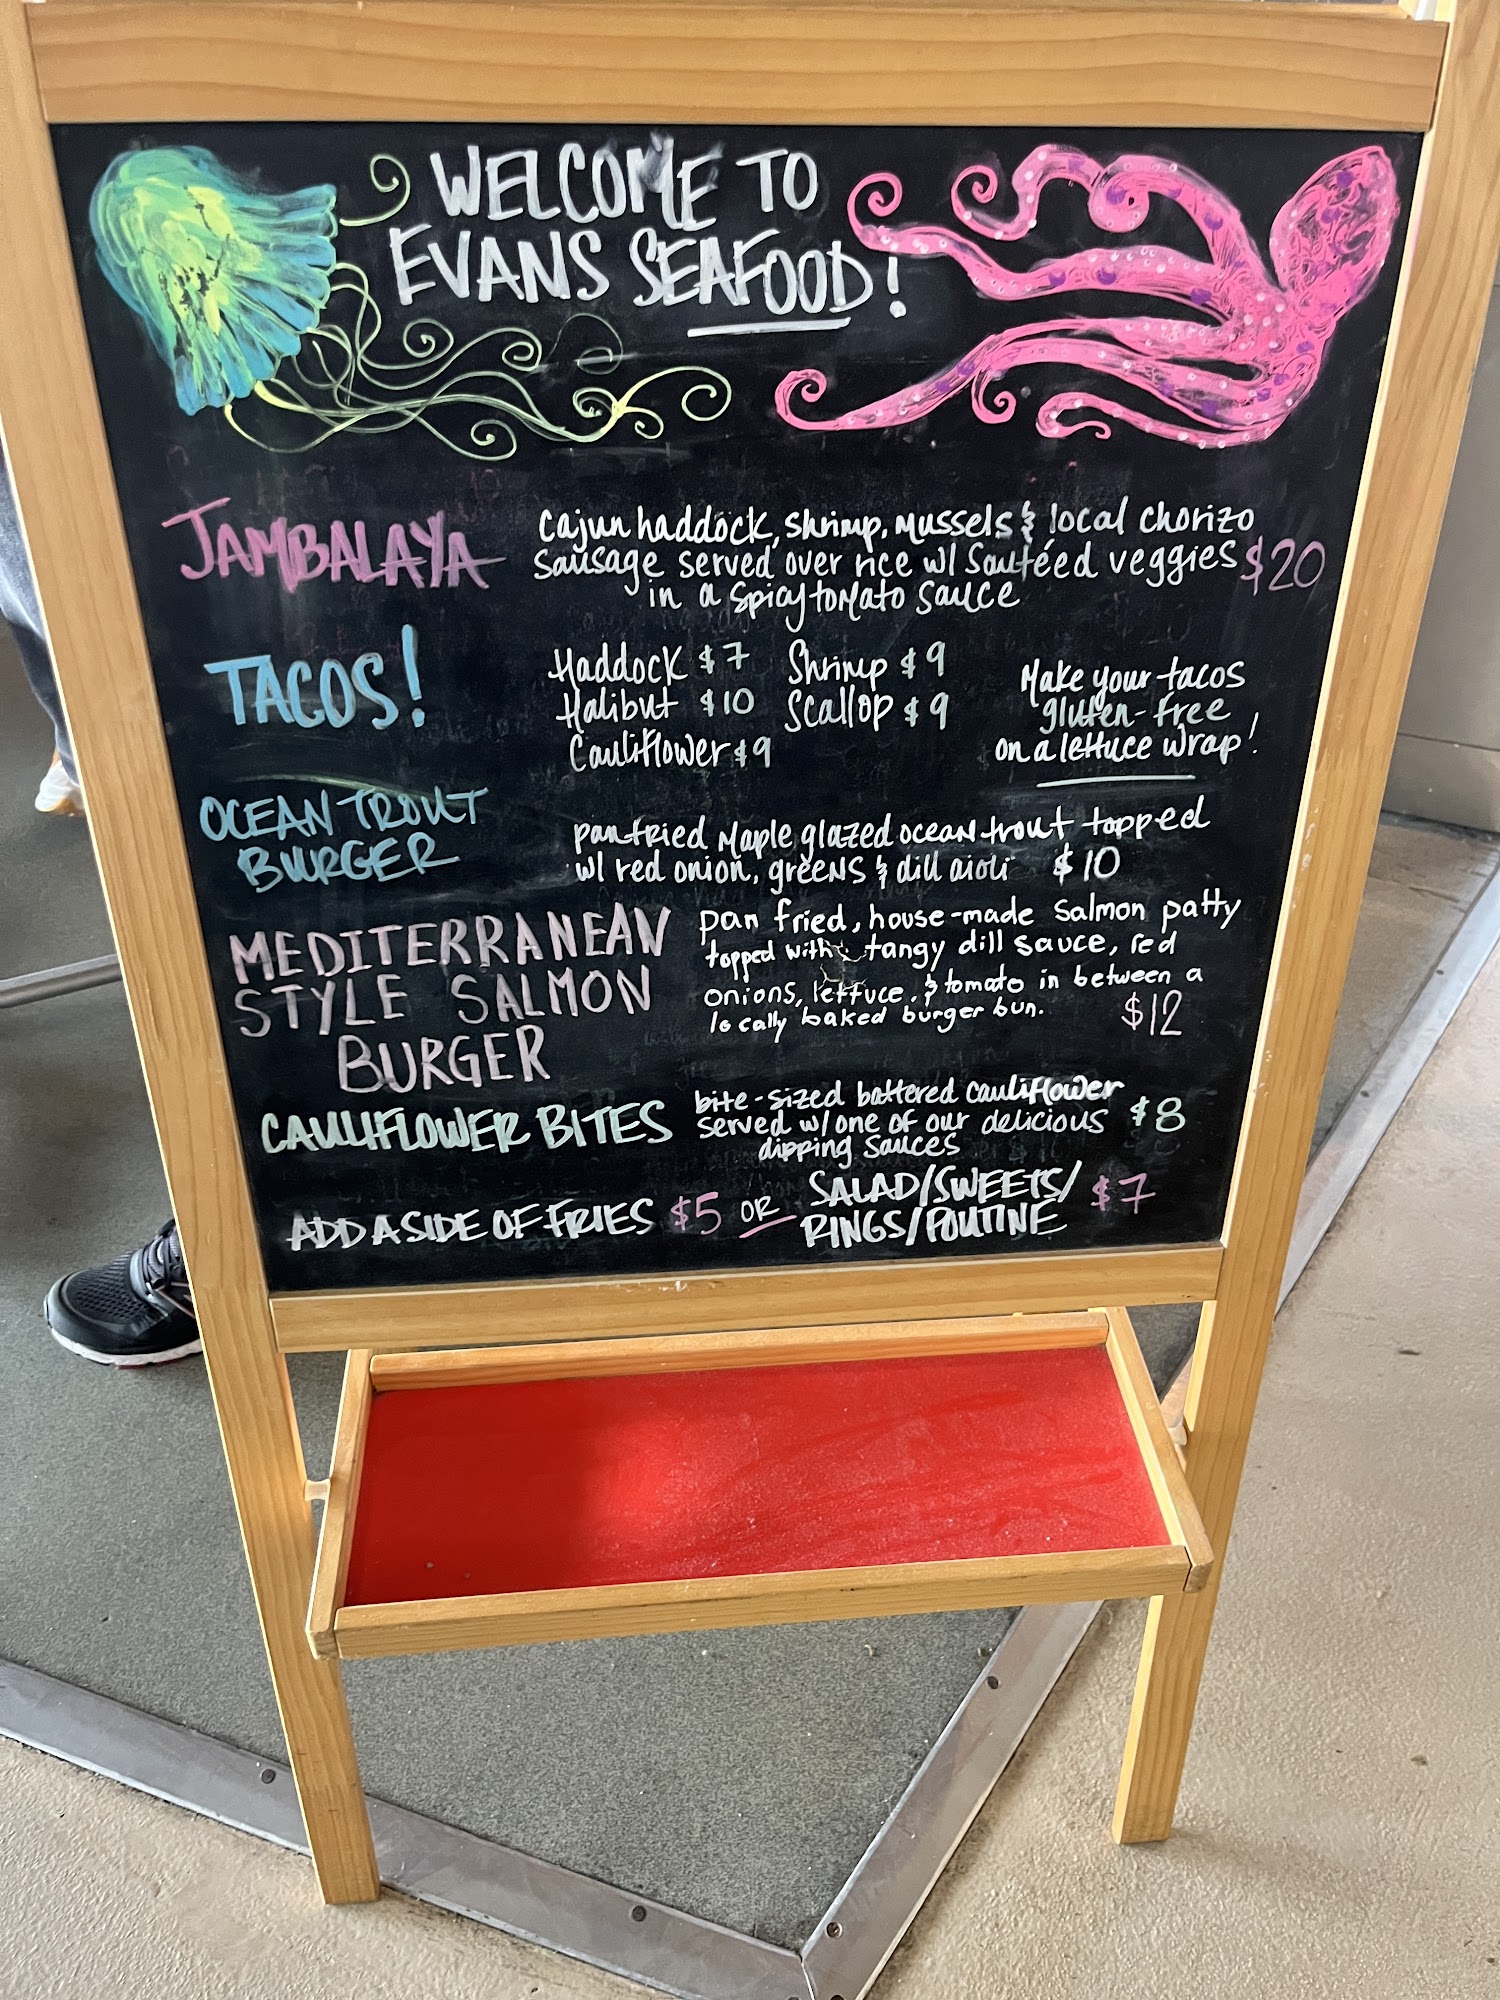 WELCOME TO
EVANS SEAFOOD!
JAMBALAYA
Cajun haddock, shrimp, mussels & local chorizo
sausage served over rice w/ sautéed veggies $20
in a spicy tomato sauce
TACOS!
Haddock $7 Shrimp $9
Halibut $10 Scallop $9
Cauliflower $9
Make your tacos
gluten-free
on a lettuce wrap!
OCEAN TROUT
BURGER
pan fried maple glazed ocean trout topped
w/ red onion, greens & dill aioli $10
MEDITERRANEAN
STYLE SALMON
BURGER
pan fried, house-made salmon patty
topped with tangy dill sauce, red
onions, lettuce, & tomato in between a
locally baked burger bun. $12
CAULIFLOWER BITES
bite-sized battered cauliflower
served w/ one of our delicious $8
dipping sauces
ADD A SIDE OF FRIES $5 OR SALAD/SWEETS/
RINGS/POUTINE $7